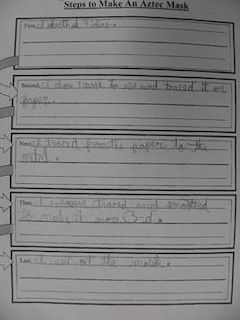 Steps to Make An Aztec Mask
First, I sketched 4 ideas.
Second, I chose 1 mask to use and traced it on
paper.
Next, I traced from the paper to the
metal.
Then, I traced and
to make it more 3-d.
Last, I cut out the mask.